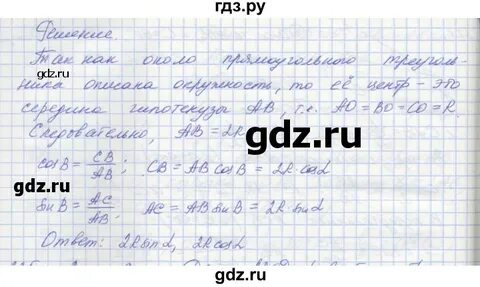 гдз.ру
Решение.
Так как около прямоугольного треуголь-
ника описана окружность, то её центр – это
середина гипотенузы AB, т.е. AO = BO = CO = R.
Следовательно, AB = 2R
gdz.ru
cosB = CB/AB; CB = AB cosB = 2R cosα
sinB = AC/AB; AC = AB sinB = 2R sinα
Ответ: 2R sinα, 2R cosα
gdz.ru
gdz.ru